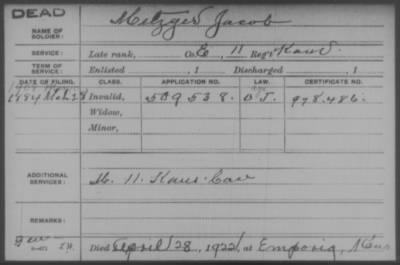 DEAD
NAME OF SOLDIER: Metzger Jacob
SERVICE: Late rank, Co. E, 11 Reg't Kans.
TERM OF SERVICE: Enlisted , 1 Discharged , 1
DATE OF FILING. CLASS. APPLICATION NO. LAW. CERTIFICATE NO.
1884 Mch 28 Invalid, 509538. 978.486.
Widow,
Minor,
ADDITIONAL SERVICES: M. 11. Kans. Cav
REMARKS:
Died April 28, 1922, at Emporia, Kans